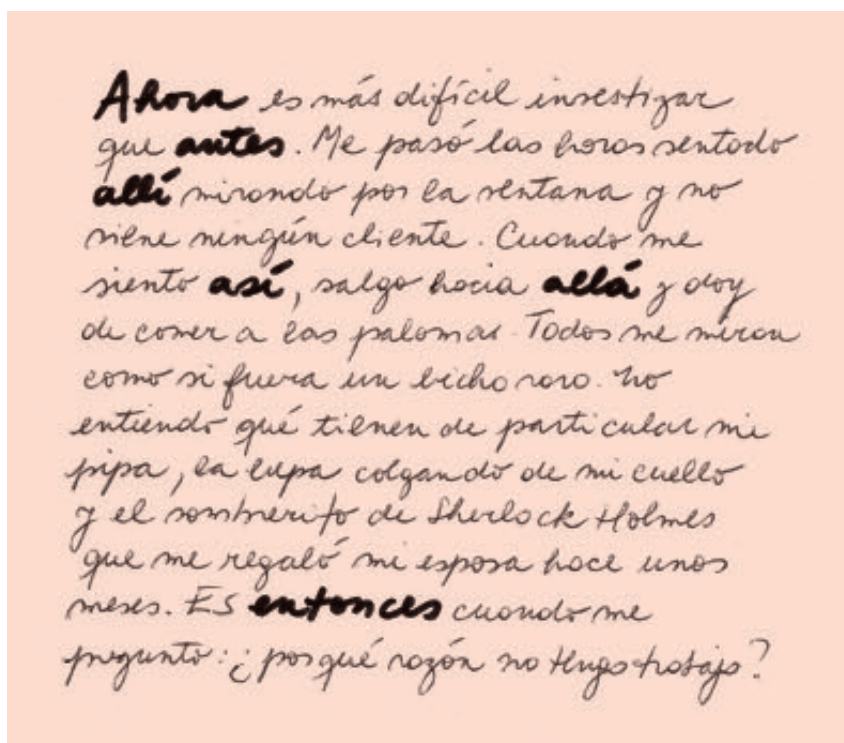 Ahora es más difícil investigar
que antes. Me pasó las horas sentado
allí mirando por la ventana y no
viene ningún cliente. Cuando me
siento así, salgo hacia allá y doy
de comer a las palomas. Todos me miran
como si fuera un bicho raro. No
entiendo qué tienen de particular mi
pipa, la lupa colgando de mi cuello
y el sombrerito de Sherlock Holmes
que me regaló mi esposa hace unos
meses. ES entonces cuando me
pregunto: ¿por qué razón no tengo trabajo?